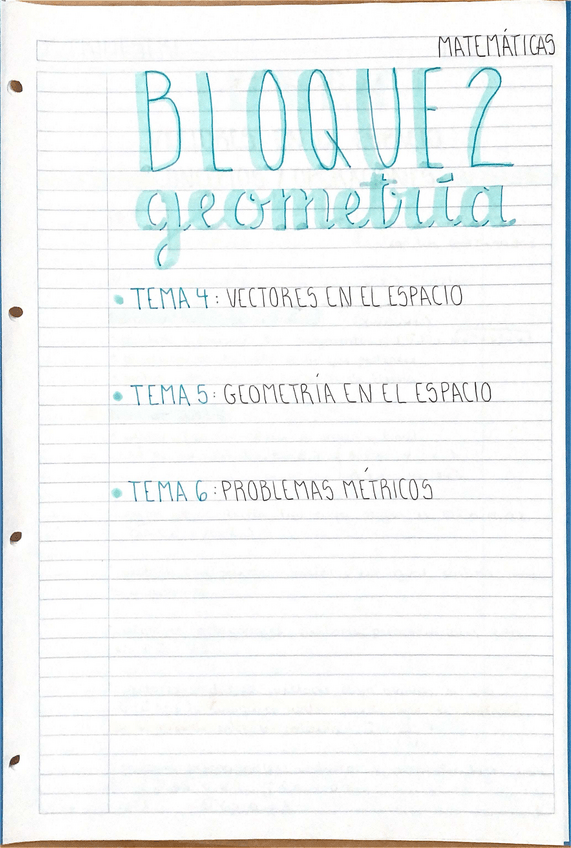 MATEMÁTICAS
BLOQUE 2
geometría
• TEMA 4: VECTORES EN EL ESPACIO
• TEMA 5: GEOMETRÍA EN EL ESPACIO
• TEMA 6: PROBLEMAS MÉTRICOS